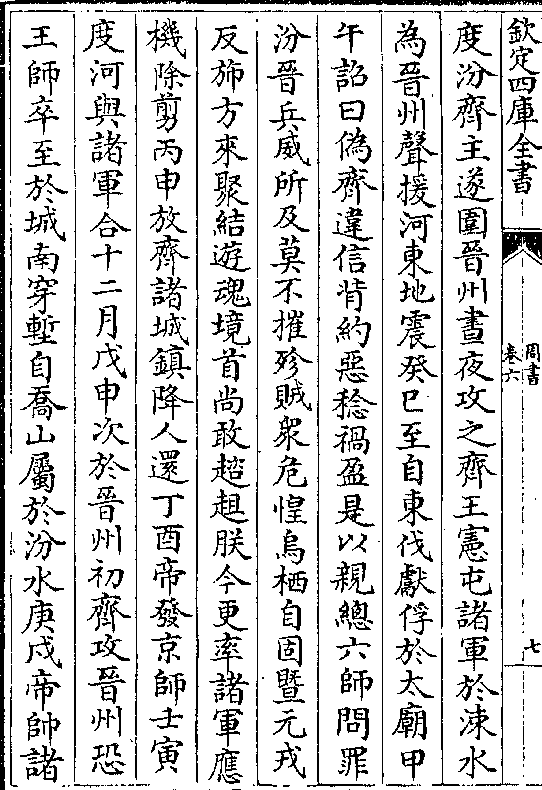 欽定四庫全書
周書
卷六
七
度汾齊主遂圍晉州晝夜攻之齊王憲屯諸軍於涑水
為晉州聲援河東地震癸巳至自東伐獻俘於太廟甲
午詔曰偽齊違信背約惡稔禍盈是以親總六師問罪
汾晉兵威所及莫不摧殄賊衆危惶烏栖自固暨元戎
反斾方來聚結遊魂境首尚敢趑趄朕今更率諸軍應
機除剪丙申放齊諸城鎮降人還丁酉帝發京師壬寅
度河與諸軍合十二月戊申次於晉州初齊攻晉州恐
王師卒至於城南穿塹自喬山屬於汾水庚戌帝帥諸